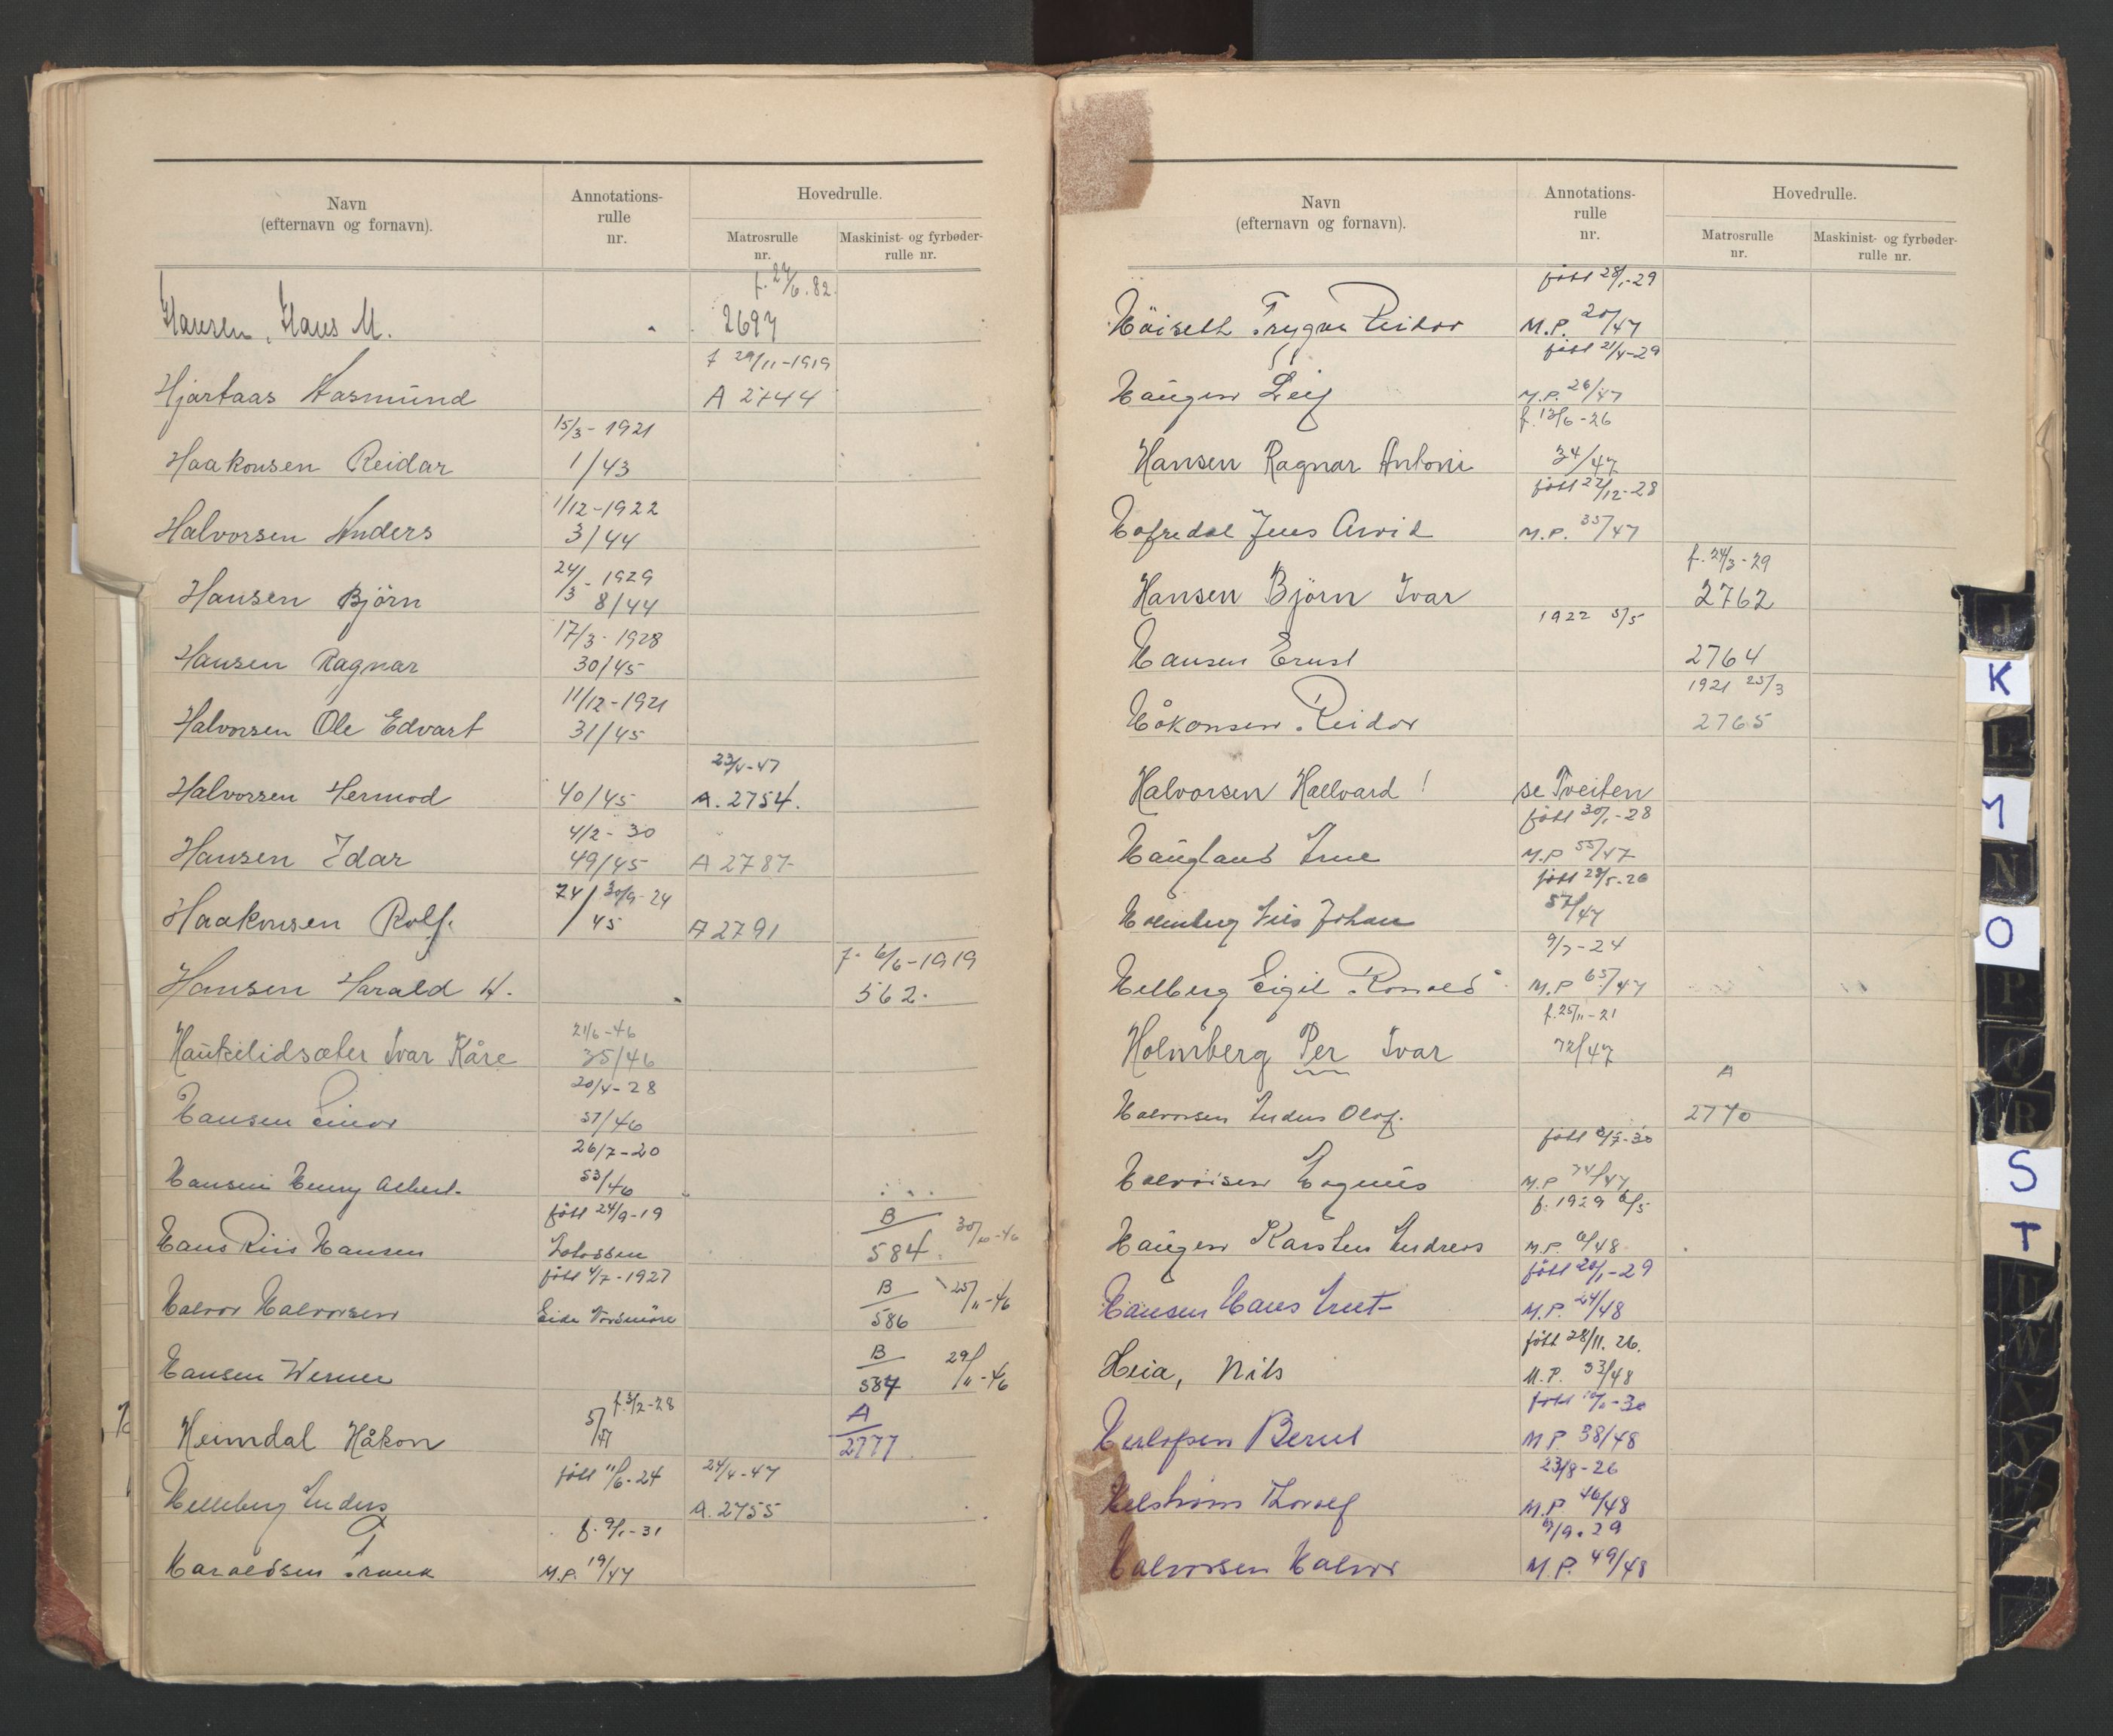 Navn
(efternavn og fornavn).
Annotations-
rulle
nr.
Hovedrulle.
Matrosrulle
nr.
Maskinist- og fyrbøder-
rulle nr.
f. 27/6.82.
Hansen, Hans M. 2697
f 29/11-1919
Hjartaas Aasmund A 2744
15/3-1921
Haakonsen Reidar 1/43
1/12-1922
Halvorsen Anders 3/44
24/3-1929
Hansen Björn 8/44
17/3-1928
Hansen Ragnar 30/45
11/12-1921
Halvorsen Ole Edvart 31/45
23/4-47
Halvorsen Hermod 40/45 A. 2754.
4/2-30
Hansen Idar 49/45 A 2787
30/9-24
Haakonsen Rolf. 74/45 A 2791
f. 6/6-1919
Hansen Harald H. 562.
21/6-46
Haukelidsæter Ivar Kåre 35/46
20/4-28
Hansen Einar 51/46
26/7-20
Hansen Henny Albert. 53/46
född 24/9-19
Hans Riis Hansen B 584. 30/10-46
född 4/7-1927
Halvor Halvorsen Eide B 586 25/11-46
Hansen Werner B 587 29/11-46
f. 3/2-28
Heimdal Håkon 5/47 A 2777
född 11/6-24 24/4-47
Helleberg Anders A. 2755
f. 9/1-31
Haraldsen Frank M.P. 19/47
Navn
(efternavn og fornavn).
Annotations-
rulle
nr.
Hovedrulle.
Matrosrulle
nr.
Maskinist- og fyrbøder-
rulle nr.
född 28/1-29
Höiseth Trygve Reidar M.P. 20/47
född 21/4-29
Haugen Leif M.P. 26/47
f. 13/6-26
Hansen Ragnar Antoni 34/47
född 27/12-28
Hofredal Jens Arvid M.P. 35/47
f. 24/3-29
Hansen Björn Ivar 2762
1922 5/5
Hansen Ernst 2764
1921 25/3
Håkonsen Reidar 2765
Halvorsen Hallvard ! se Tveiten
född 30/1-28
Haugland Arne M.P 55/47
född 28/5-26
Holmberg Nils Johan 57/47
9/7-24
Helberg Eigil Ronald M.P 65/47
f. 25/11-21
Holmberg Per Ivar 72/47
A
Halvorsen Anders Olaf. 2770
född
Halvorsen Magnus M.P 74/47
f. 1929 6/5
Haugen Karsten Andreas M.P. 6/48
född 20/1-29
Hansen Hans Knut M.P. 24/48
född 28/11.26.
Heia, Nils M.P. 33/48
född
Herlofsen Bernt M.P. 38/48
23/8-26
Helstrøm Thoralf M.P. 46/48
9/9.29
Halvorsen Halvor M.P. 49/48
J
K
L
M
N
O
P
Q
R
S
T
U
W
X
Y